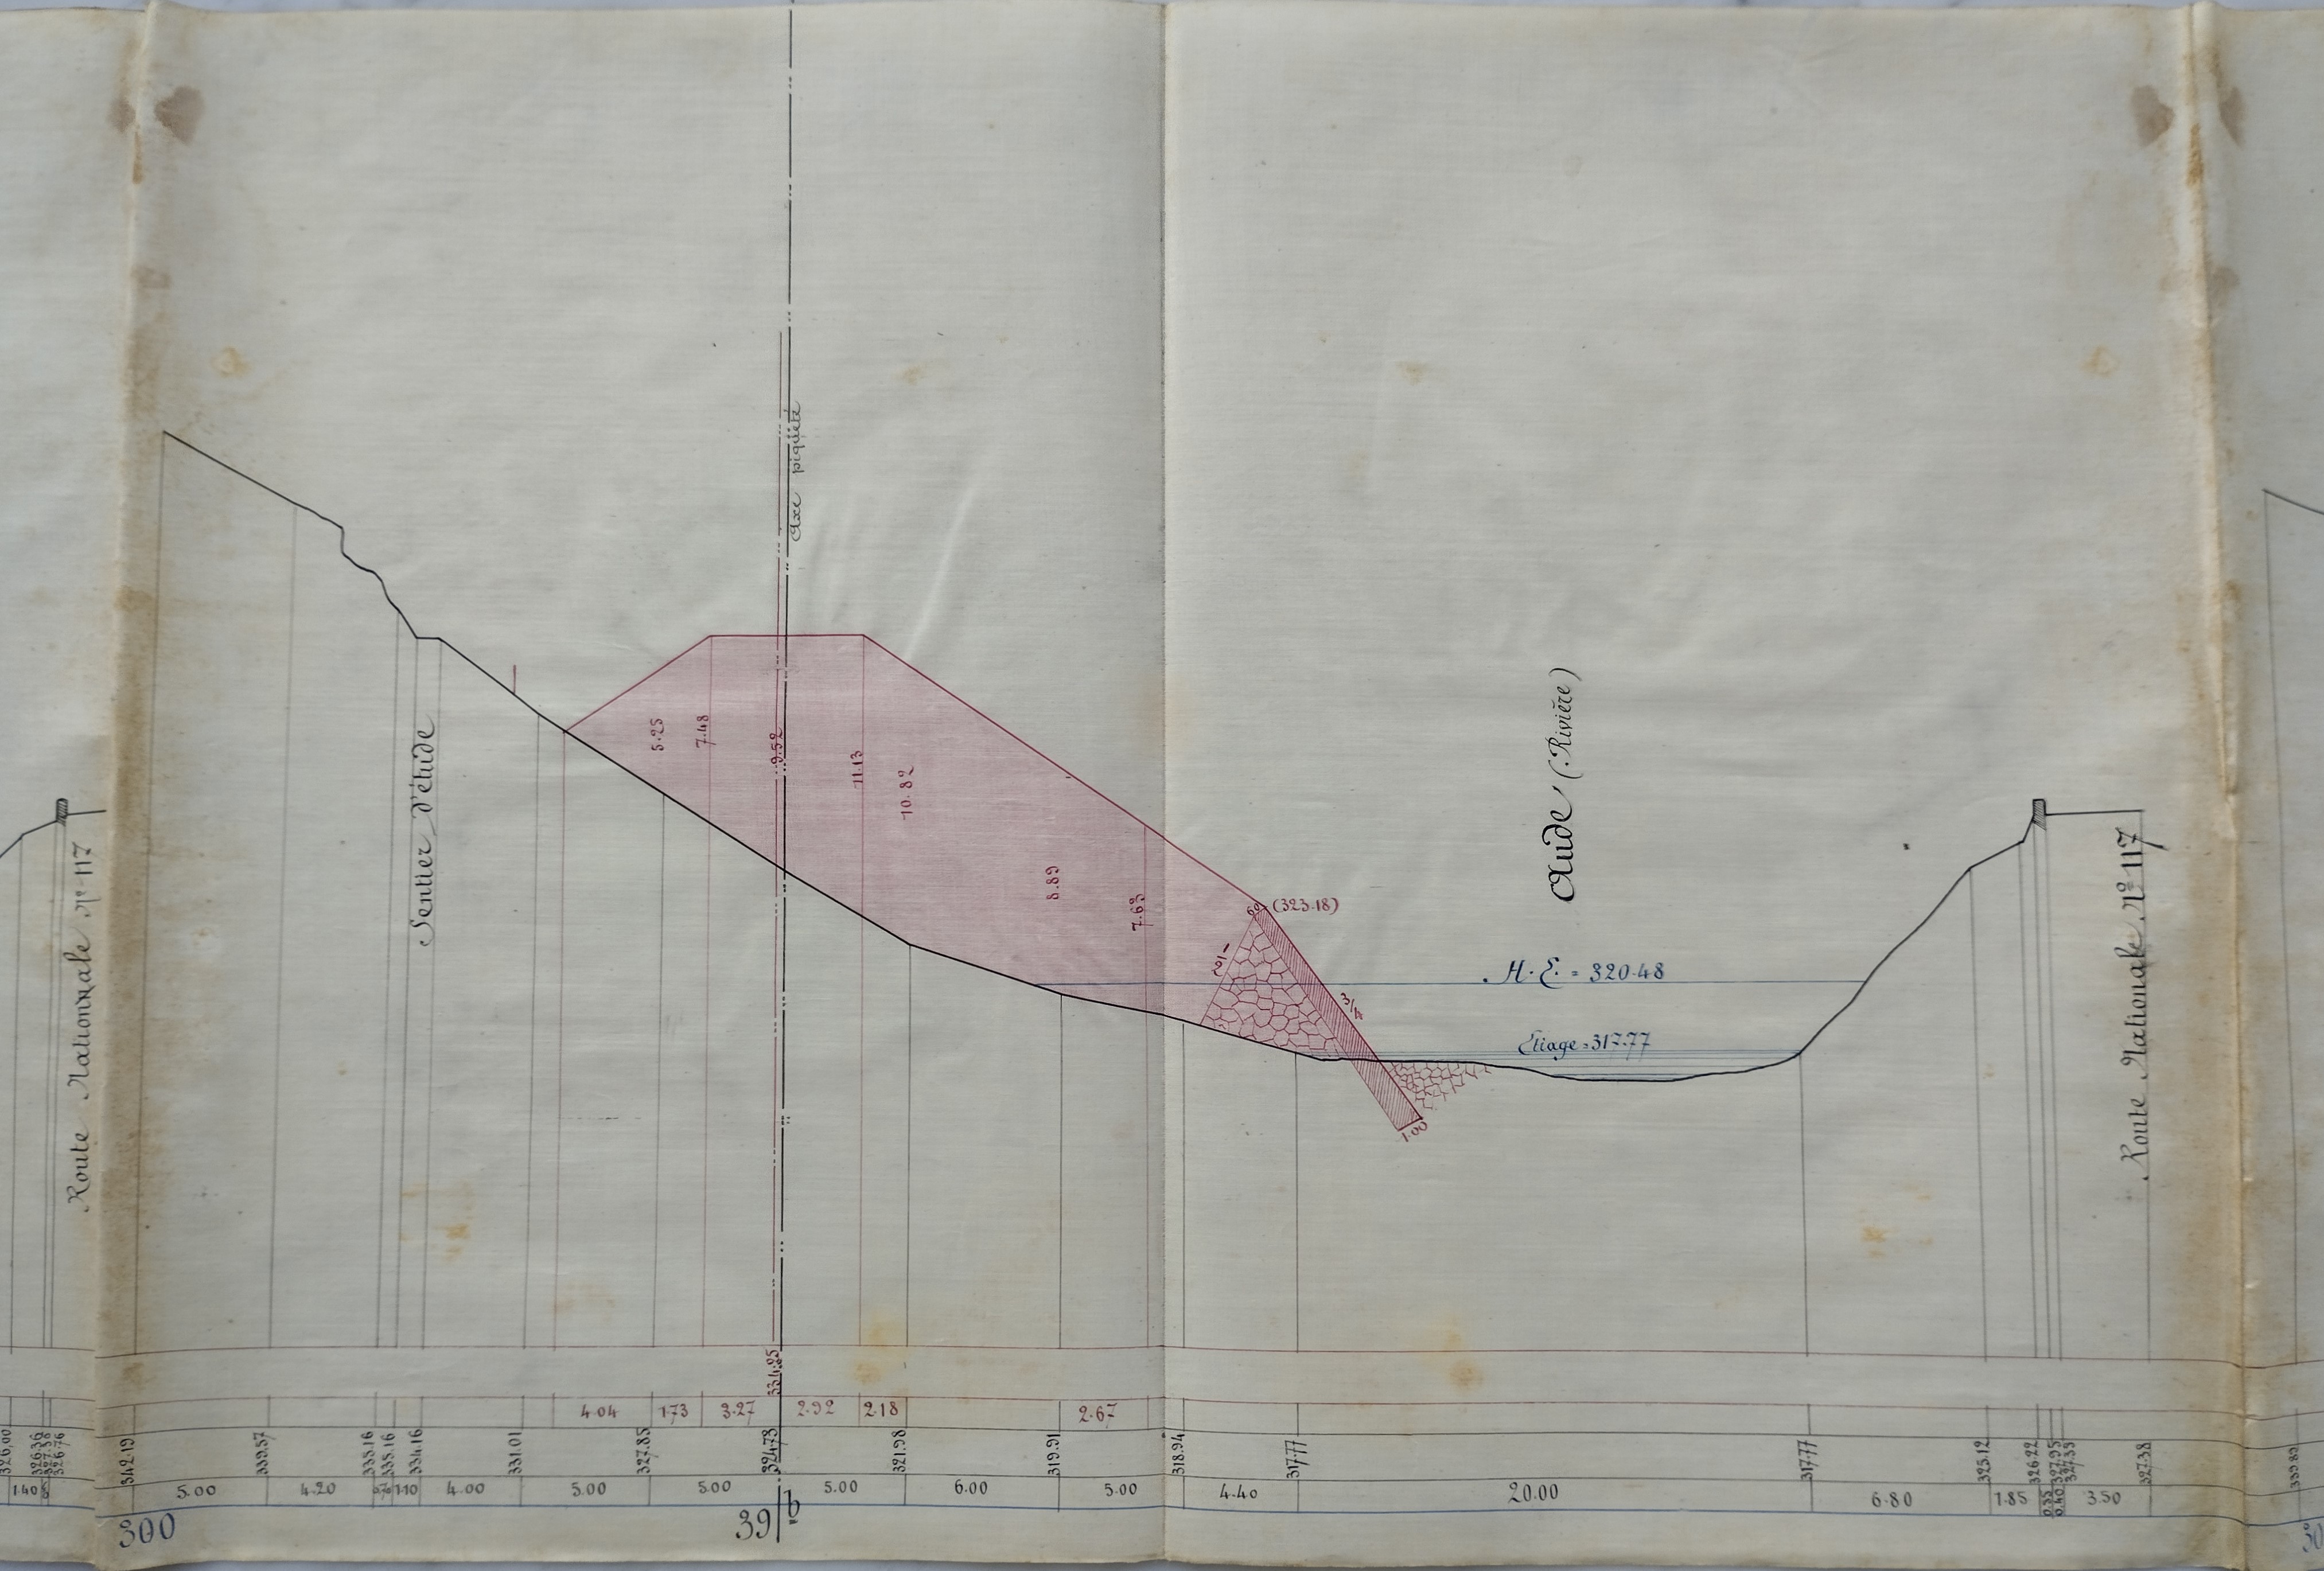 Axe piqueté
Route Nationale Nº 117
Sentier d'étude
5.25
7.48
9.52
11.13
10.82
8.89
7.63
(323.18)
3/4
1.00
Aude (Rivière)
H.E. = 320.48
Etiage = 317.77
Route Nationale Nº 117
4.04 1.73 3.27 2.92 2.18 2.67
326.00 326.76 342.19 339.57 335.16 335.16 334.16 331.01 327.85 324.73 321.98 319.91 318.94 317.77 317.77 325.12 326.22 327.38
1.40 5.00 4.20 1.10 4.00 5.00 5.00 5.00 6.00 5.00 4.40 20.00 6.80 1.85 0.35 0.40 3.50
300 39 b